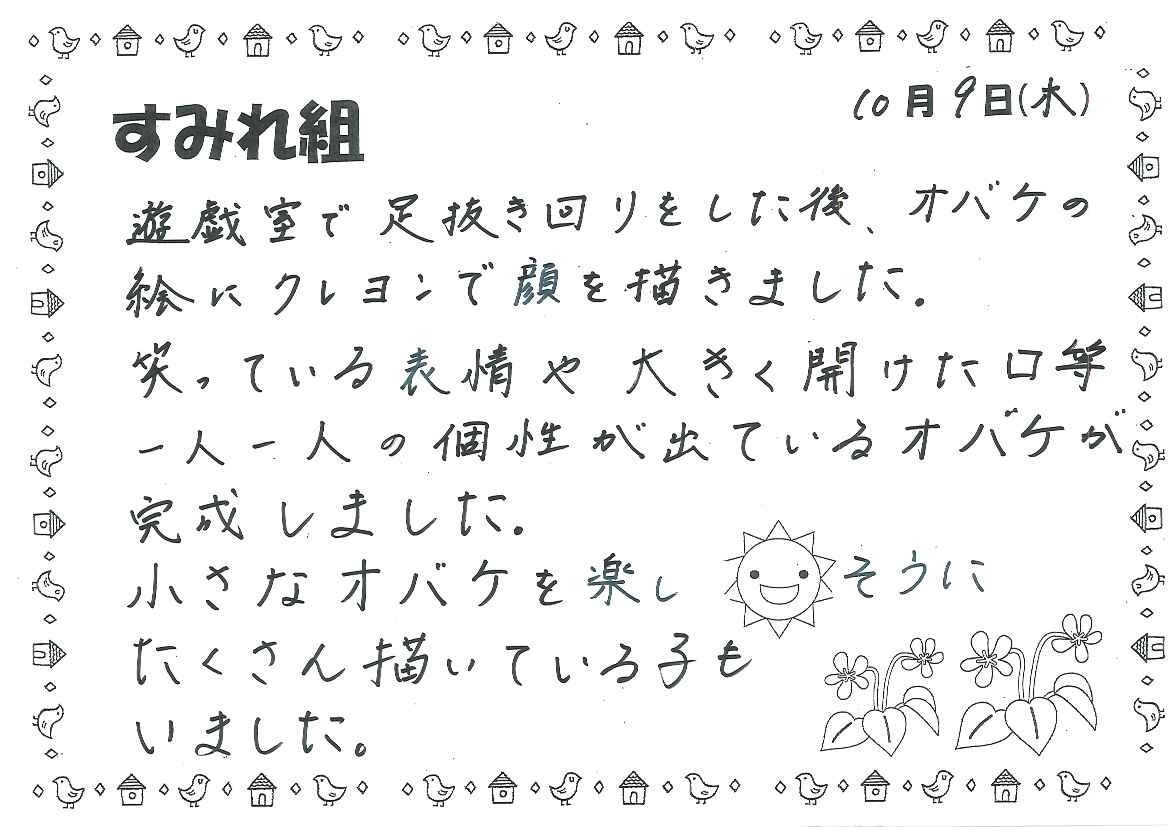 すみれ組
10月9日(水)
遊戯室で足抜き回りをした後、オバケの
絵にクレヨンで顔を描きました。
笑っている表情や大きく開けた口等
一人一人の個性が出ているオバケが
完成しました。
小さなオバケを楽しそうに
たくさん描いている子も
いました。